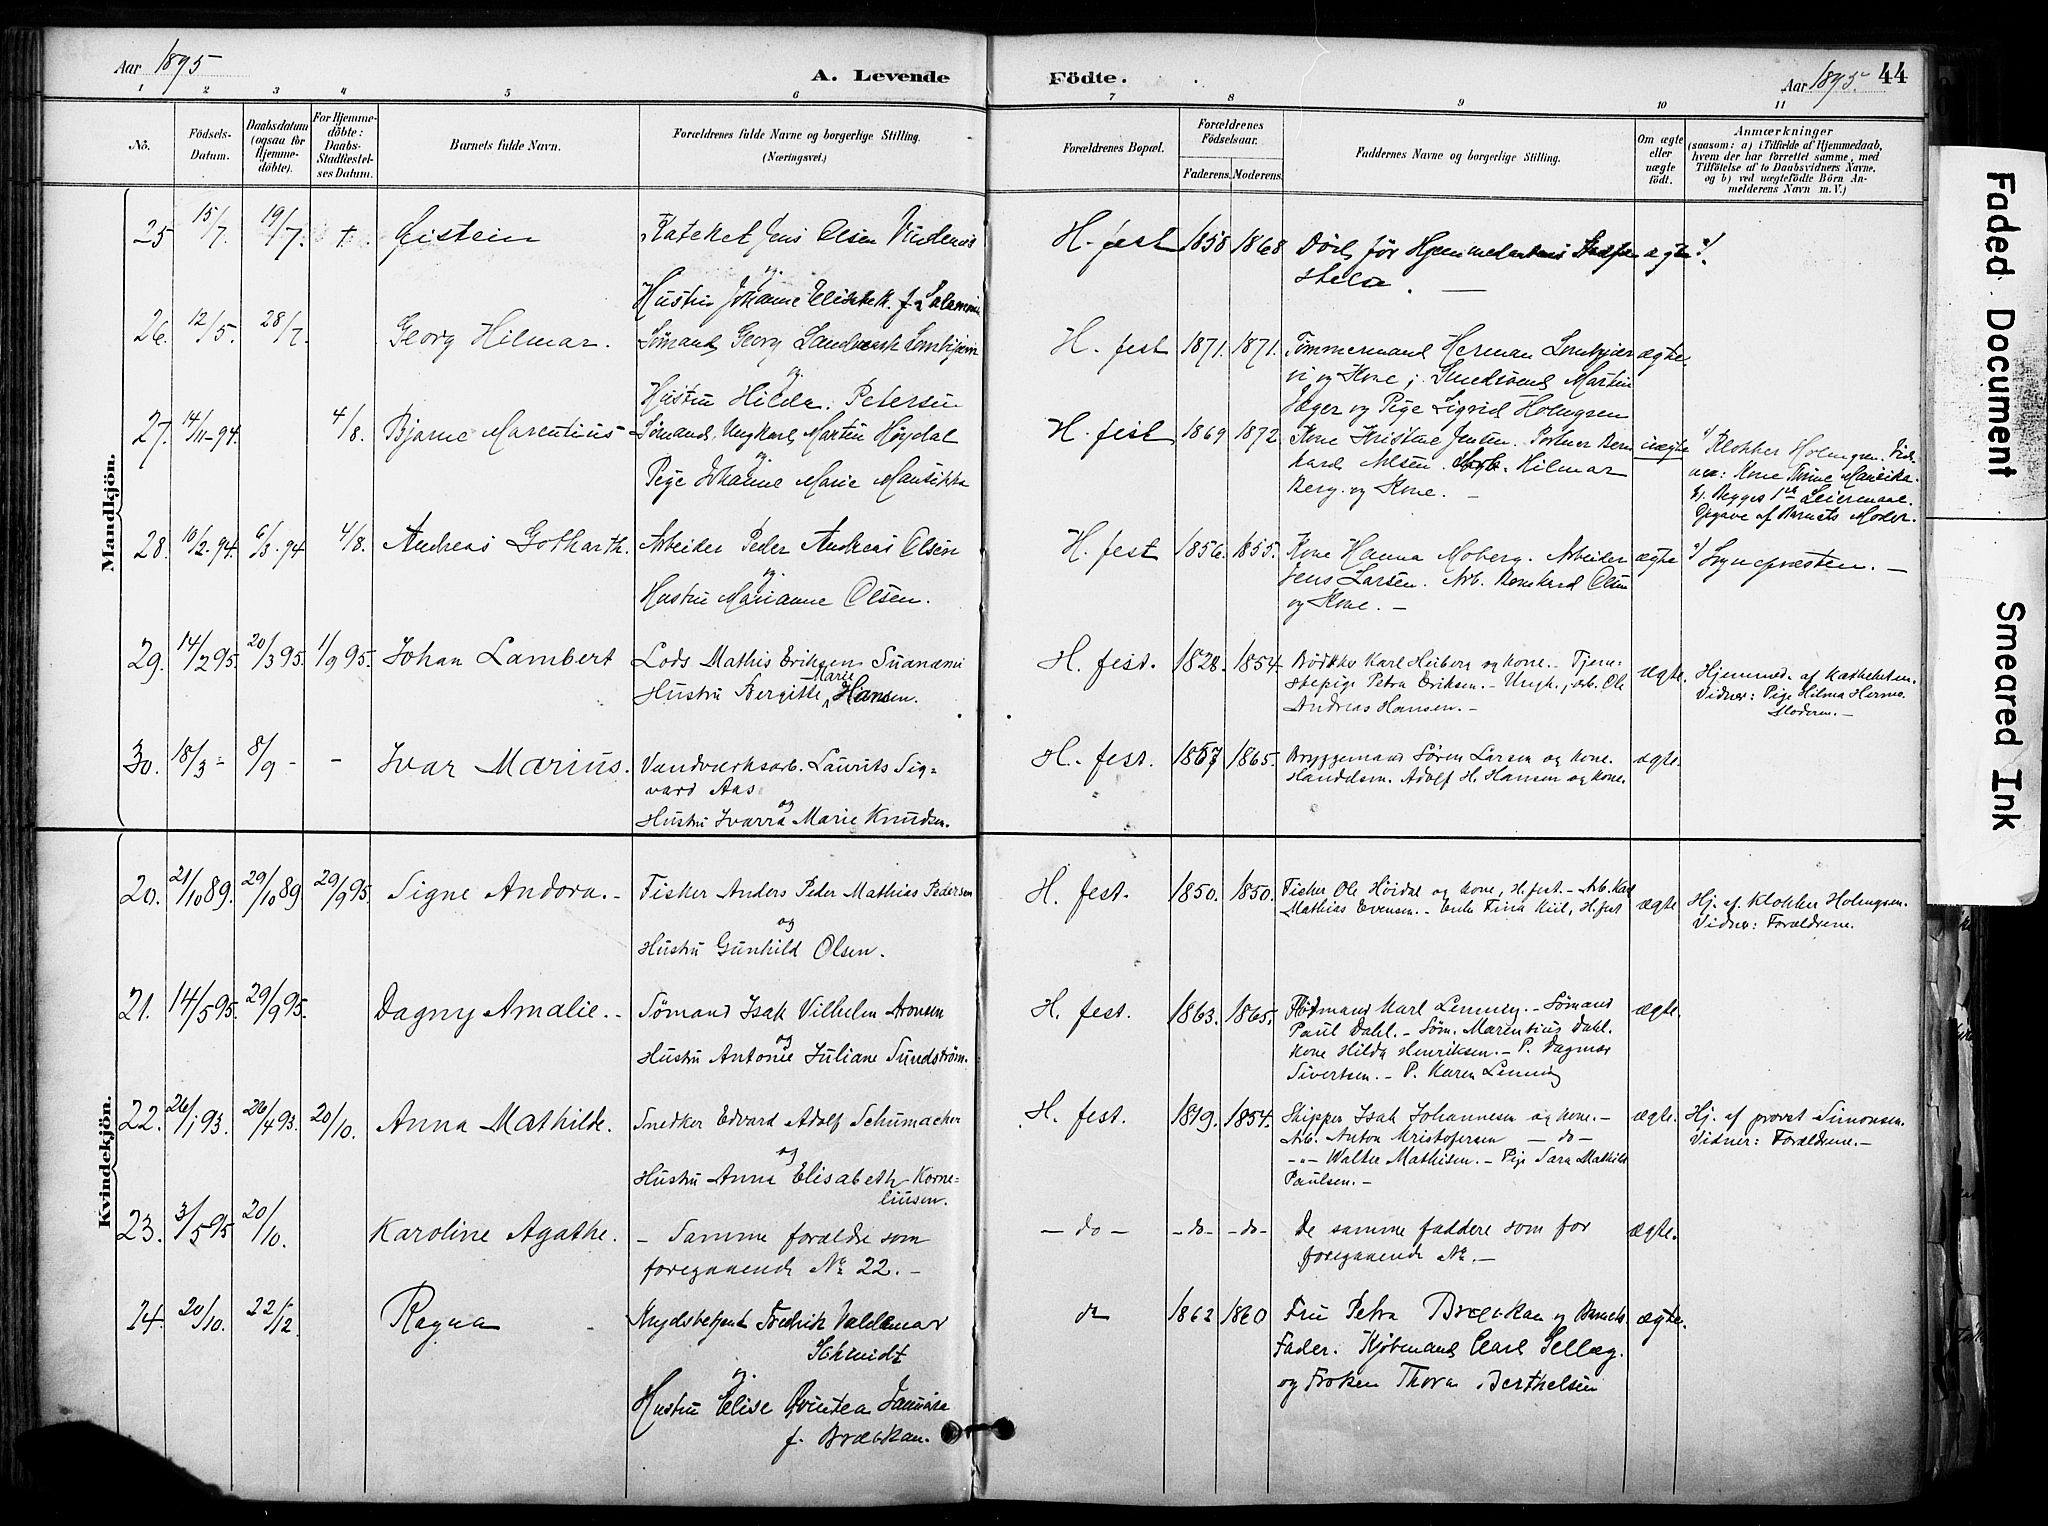 Aar 1895
A. Levende
Födte.
Aar 1895.
44
1 2 3 4 5 6 7 8 9 10 11
No.
Födsels-
Datum.
Daabsdatum
(ogsaa for
Hjemme-
döbte).
For Hjemme-
döbte:
Daabs-
Stadfæstel-
ses Datum.
Barnets fulde Navn.
Forældrenes fulde Navne og borgerlige Stilling.
(Næringsvei.)
Forældrenes Bopæl.
Forældrenes
Födselsaar.
Faderens. Moderens.
Faddernes Navne og borgerlige Stilling.
Om ægte
eller
uægte
födt.
Anmærkninger
(saasom: a) i Tilfælde af Hjemmedaab,
hvem der har forrettet samme, med
Tilföielse af to Daabsvidners Navne,
og b) ved uægtefödte Börn An-
melderens Navn m. V.)
Mandkjön.
25 15/7. 19/7. +. Øistein
Kateket Jens Olsen
og
Hustru Johanne Elisabeth f.
H. fest 1858 1868
Død før Hjemmedaabens
ægte
26. 12/5. 28/7. Georg Hilmar.
Sømand Georg
og
Hustru Hilda Petersen
H. fest 1871. 1871.
Tømmermand Herman
og Kone; Martin
Jæger og Pige Sigrid Holmgren
ægte.
27. 14/11-94. 4/8. Bjarne Marentius
Sømand, Ungkarl Martin Høydal
og
Pige Johanne Marie
H. fest 1869 1872
Kone Kristine Jensen.
Hilmar
Berg og Kone. –
uægte
Klokker Holmgren.
Begges 1ste Leiermaal.
Opgave af Barnets Moder.
28. 10/2-94. 6/3-94 4/8. Andreas Gotharth.
Arbeider Peder Andreas Olsen
og
Hustru Marianne Olsen.
H. fest 1856. 1855.
Kone Hanna Moberg. Arbeider
Jens Larsen. Arb. Bernhard Olsen
og Kone. –
ægte
Sognepræsten. –
29. 14/2 95. 20/3 95. 1/9 95. Johan Lambert
Lods Mathis Eriksen
Marie
Hustru Bergitte Hansen.
H. fest. 1828. 1854.
Bødker Karl Heiberg og kone. – Tjene-
stepige Petra Eriksen. – Ungk., arb. Ole
Andreas Hansen. –
ægte.
Hjemmed. af Katheketen.
Vidner: Pige Hilma Hermo.
Moderen. –
30. 18/3 – 8/9 – – Ivar Marius.
Vandværksarb. Laurits Sig-
vard Aas
og
Hustru Ivarra Marie Knudsen.
H. fest. 1867 1865.
Bryggemand Søren Larsen og kone.
Handelsm. Adolf H. Hansen og kone.
ægte.
Kvindekjön.
20. 21/10 89. 29/10 89 29/9 95. Signe Andora. –
Fisker Anders Peder Mathias Pedersen
og
Hustru Gunhild Olsen.
H. fest. 1850. 1850.
Fisker Ole Høidal og kone, H.fest. – Arb. Karl
Mathias Evensen. – Enke Fina Kiil, H.fest
ægte
Hj. af Klokker Holmgren.
Vidner: Forældrene.
21. 14/5 95. 29/9 95. Dagny Amalie. –
Sømand Isak Vilhelm Aronsen
og
Hustru Antonie Juliane Sundström.
H. fest. 1863. 1865.
Karl Lenning. – Sømand
Paul Dahl. – Søm. Marentius Dahl.
Kone Hilda Henriksen. – P. Dagmar
Sivertsen. – P. Karen Lenning
ægte.
22. 26/1 93. 26/4 93. 20/10. Anna Mathilde.
Snedker Edvard Adolf Schumacher
og
Hustru Anna Elisabeth Korne-
liusen.
H. fest. 1849. 1854.
Skipper Isak Johannesen og kone. –
Arb. Anton Kristofersen – do –
–"– Walter Mathisen. – Pige Sara Mathilde
Paulsen. –
ægte.
Hj. af provst Simonsen.
Vidner: Forældrene. –
23. 3/5 95 20/10. Karoline Agathe.
– Samme forældre som
foregaaende No 22. –
– do – – do – – do –
De samme faddere som for
foregaaende No. –
ægte.
24. 20/10. 22/12. Ragna –
Fredrik Valdemar
Schmidt
og
Hustru Elise
f. Brækkan.
do 1862 1860
Fru Petra Brækkan og Barnets
Fader. Kjøbmand Carl Sellæg.
og Frøken Thora Berthelsen
ægte.
Faded Document
Smeared Ink